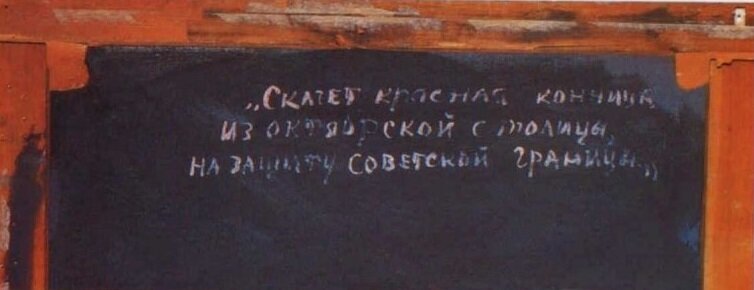 „Скачет красная конница
из октябрьской столицы,
на защиту советской границы„